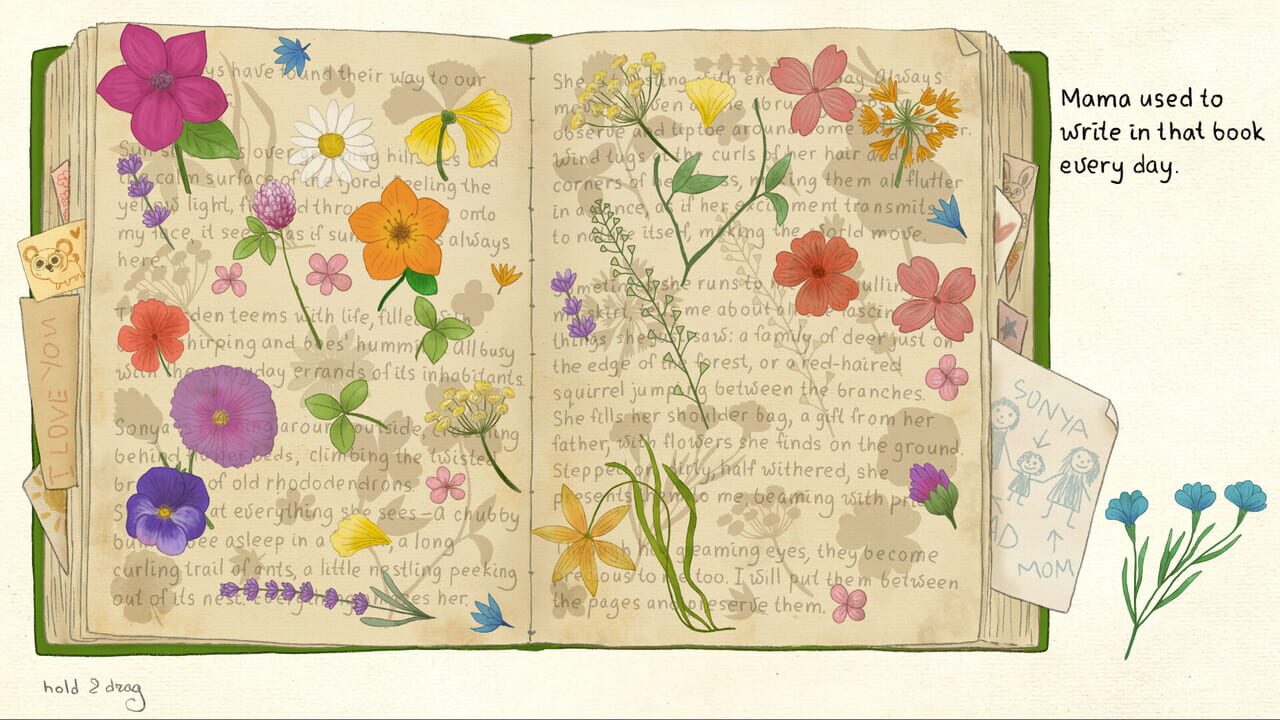 ys have found their way to our
Sun over hills and
the calm surface of the fjord, peeling the
yellow light, onto
my face, it seems as if sun always
here.
den teems with life, filled
chirping and bees' humming. All busy
with the everyday errands of its inhabitants.
Sonya's running around outside,
behind flower beds, climbing the twisted
of old rhododendrons.
at everything she sees—a chubby
bumblebee asleep in a a long
curling trail of ants, a little nestling peeking
out of its nest. Everything amazes her.
She with Always
observe and tiptoe around
Wind tugs at the curls of her hair and
corners of making them all flutter
in a dance, as if her excitement transmits
to nature itself, making the world move.
Sometimes she runs to me pulling
my skirt, me about all
things she saw: a family of deer just on
the edge of the forest, or a red-haired
squirrel jumping between the branches.
She fills her shoulder bag, a gift from her
father, with flowers she finds on the ground.
Stepped on, dirty, half withered, she
presents them to me beaming with
her gleaming eyes, they become
precious to me too. I will put them between
the pages and preserve them.
Mama used to
write in that book
every day.
I LOVE YOU
SONYA
MOM
hold & drag